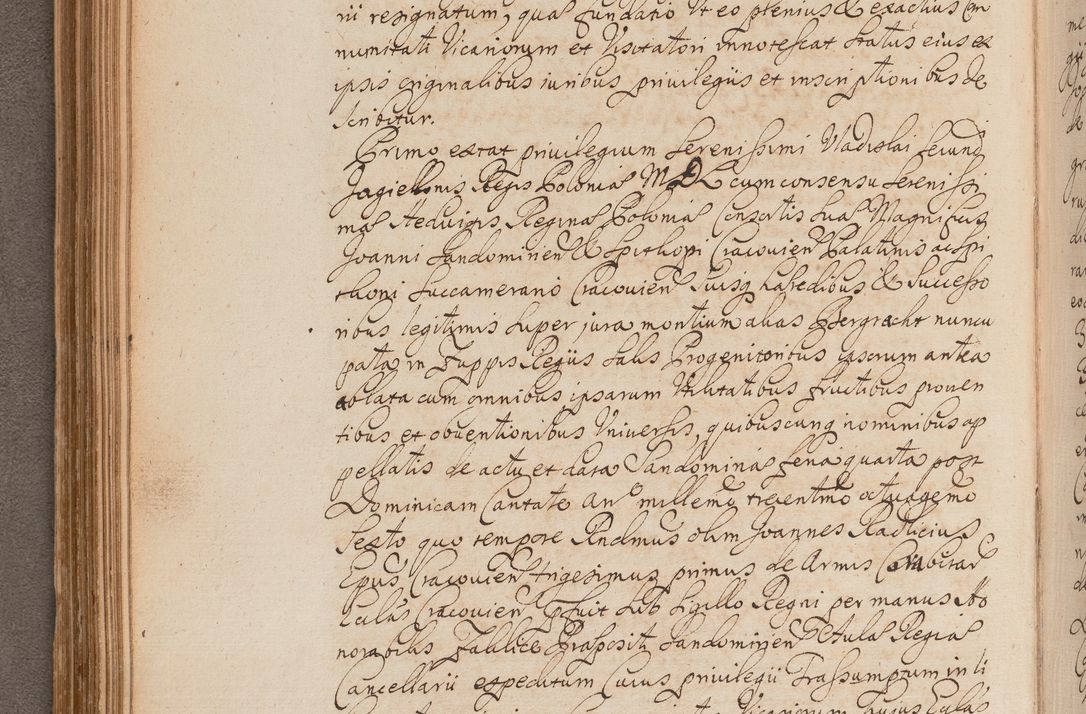 rii resignatum, qua fundatio Vt eo plenius & exactius Com
munitati Vicariorum et Visitatori innotescat status eius ex
ipsis originalibus iuribus privilegiis et inscriptionibus de
scribitur.
Primo extat privilegium Serenissimi Vladislai Secund
Jagiellonis Regis Poloniæ M D L cum consensu Serenissi
mæ Heduigis Reginæ Poloniæ Consortis suæ Magnificis
Joanni Sandomirien & Spithoni Cracouien Palatinis ac Spi
thoni Succamerario Cracouien Suisq hæredibus & Successo
ribus legitimis super jura montium alias Bergracht nuncu
pata in Zuppis Regiis Salis Progenitoribus ipsorum antea
ablata cum omnibus ipsarum Vtilitatibus fructibus proven
tibus et obventionibus Vniversis, quibuscunq nominibus ap
pellatis de actu et data Sandomiriæ feria quarta post
Dominicam Cantate anº millemo trecentmo octuagemo
Sexto quo tempore Rndmus olim Joannes Radlicius
Epus Cracouien trigesimus primus de Armis Corabitar
Eclæ Cracouien præfuit sub Sigillo Regni per manus Ho
norabilis Zaklice Præpositi Sandomirien Aulæ Regiæ
Cancellarii expeditum Cuius privilegii Trassumptum in li
Vicariorum huius Eclæ